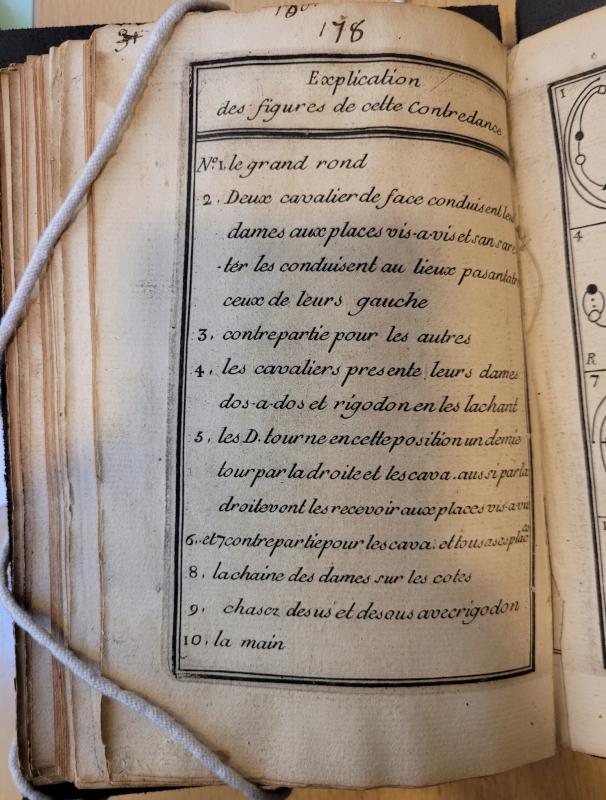 178
Explication
des figures de cette Contredance
Nº1. le grand rond
2. Deux cavalier de face conduisent leurs
dames aux places vis-a-vis et sans are
-tér les conduisent au lieux pas
ceux de leurs gauche
3, contrepartie pour les autres
4, les cavaliers presente leurs dames
dos-a-dos et rigodon en les lachant
5, les D. tourne en cette position un demie
tour par la droite et les cava. aussi par la
droite vont les recevoir aux places vis-a-vis
6, et 7 contrepartie pour les cava: et tous a ses places
8, la chaine des dames sur les cotes
9, chasez desus et desous avec rigodon
10, la main
1
4
R
7